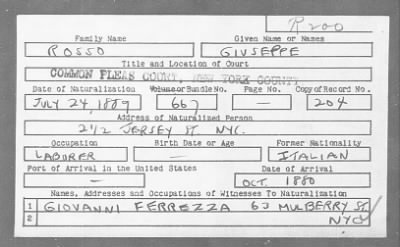 R200
Family Name Given Name or Names
ROSSO GIUSEPPE
Title and Location of Court
COMMON PLEAS COURT, NEW YORK COUNTY
Date of Naturalization Volume or Bundle No. Page No. Copy of Record No.
JULY 24, 1889 667 — 204
Address of Naturalized Person
2 1/2 JERSEY ST. NYC.
Occupation Birth Date or Age Former Nationality
LABORER — ITALIAN
Port of Arrival in the United States Date of Arrival
— OCT. 1880
Names, Addresses and Occupations of Witnesses To Naturalization
1 GIOVANNI FERREZZA 63 MULBERRY ST.
2 NYC